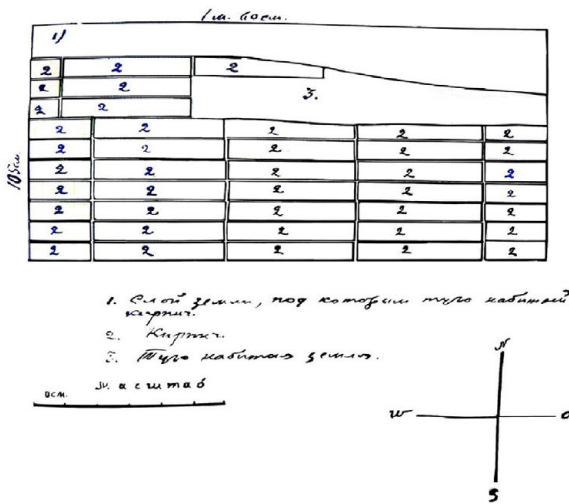 1 м. 60 см.
1)
2 2 2
2 2 3.
2 2
2 2 2 2 2
2 2 2 2 2
2 2 2 2 2
2 2 2 2 2
2 2 2 2 2
2 2 2 2 2
2 2 2 2 2
105 см.
1. Слой земли, под которым туго набитый
кирпич.
2. Кирпич.
3. Туго набитая земля.
Масштаб
0 см.
N
W O
S